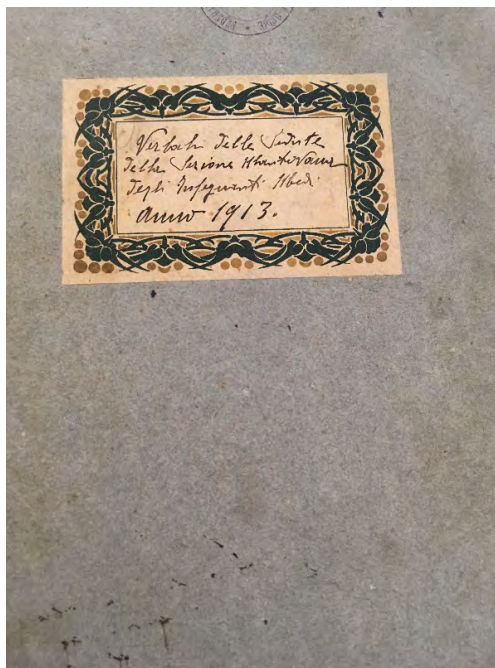 Verbali delle Sedute
della Sezione Mantovana
degli Insegnanti Medi
Anno 1913.